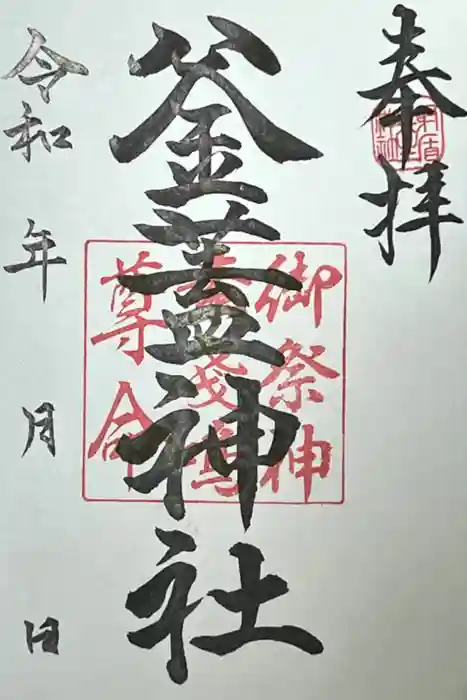 奉拝
釜蓋神社
御祭神
素戔嗚
尊命
令和 年 月 日